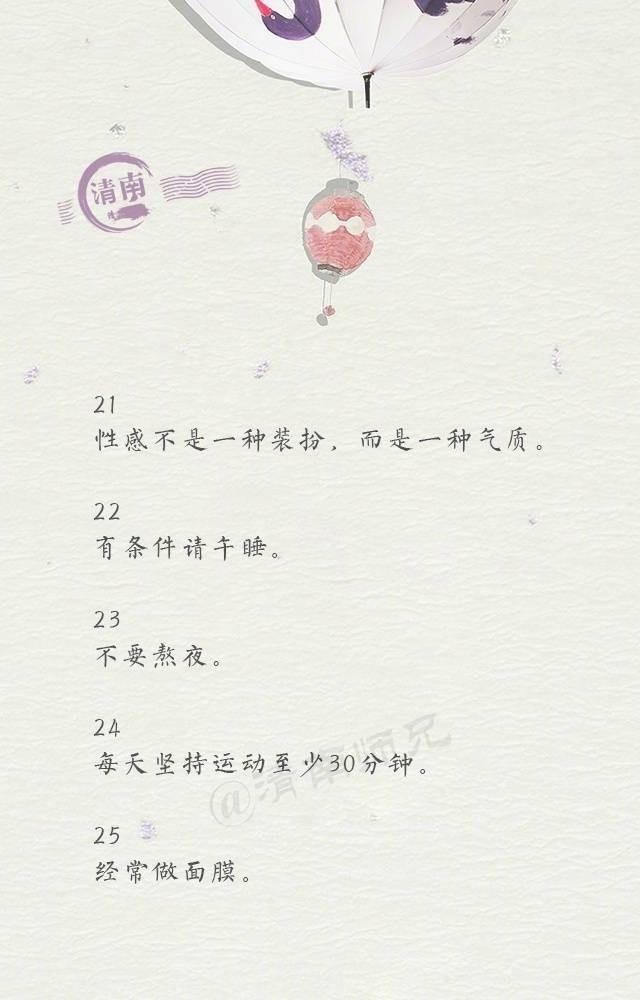 清南
21
性感不是一种装扮，而是一种气质。
22
有条件请午睡。
23
不要熬夜。
24
每天坚持运动至少30分钟。
@清南师兄
25
经常做面膜。